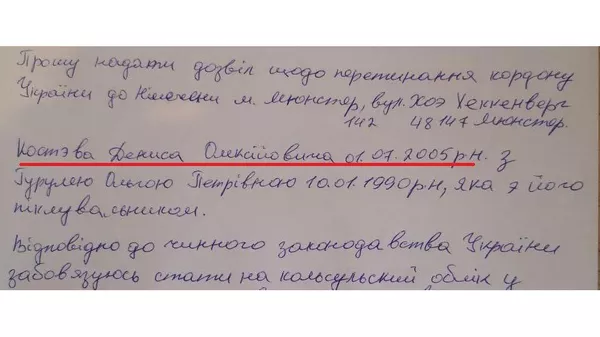 Прошу надати дозвіл щодо перетинання кордону
України до Німечени м. Мюнстер, вул. Хоэ Геккенверг
142 48147 Мюнстер.
Костэва Дениса Олексійовича 01.07.2005 рн. з
Гурулею Ольгою Петрівною 10.01.1990 рн, яка э його
піклувальником.
Відповідно до чинного законодавства України
забовязуюсь стати на кольсульский облік у